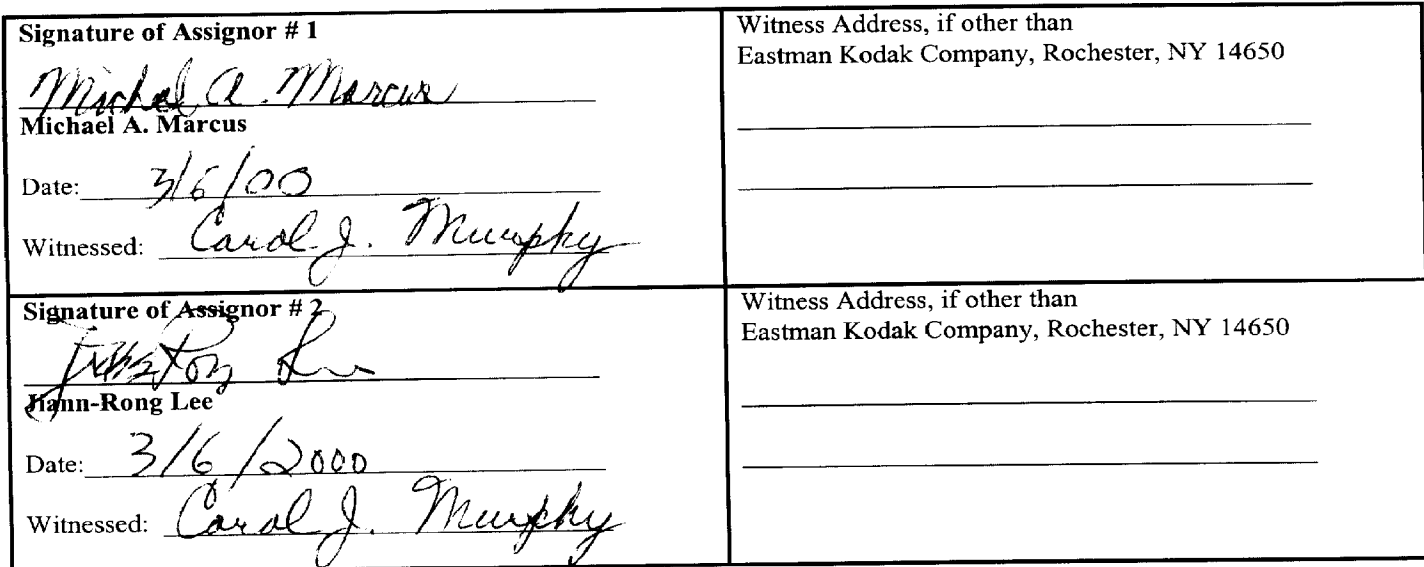 Signature of Assignor # 1
Michael A. Marcus
Michael A. Marcus
Date: 3/6/00
Witnessed: Carol J. Murphy
Witness Address, if other than
Eastman Kodak Company, Rochester, NY 14650
Signature of Assignor # 2
Jiann-Rong Lee
Date: 3/6/2000
Witnessed: Carol J. Murphy
Witness Address, if other than
Eastman Kodak Company, Rochester, NY 14650